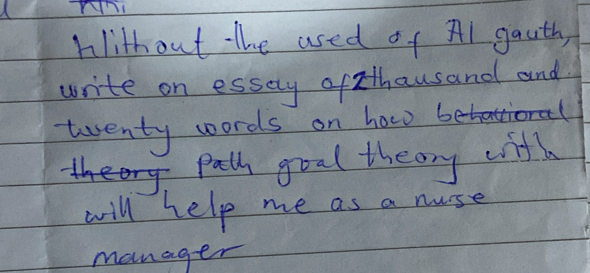 Without the used of AI gauth,
write on essay of 2thausand and
twenty words on how behavioral
theory path goal theory with
will help me as a nurse
manager